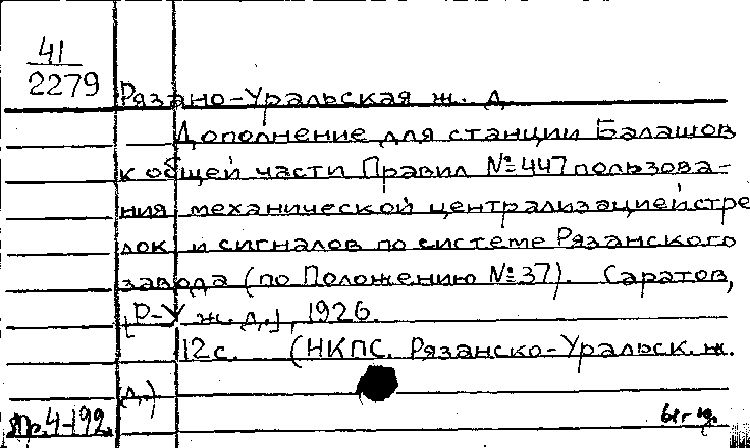 41
2279
Рязано-Уральская ж. д.
Дополнение для станции Балашов
к общей части Правил №447 пользова-
ния механической централизацией стре
лок и сигналов по системе Рязанского
завода (по Положению №37). Саратов,
[Р-У ж. д.], 1926.
12с. (НКПС. Рязанско-Уральск. ж.
д.)